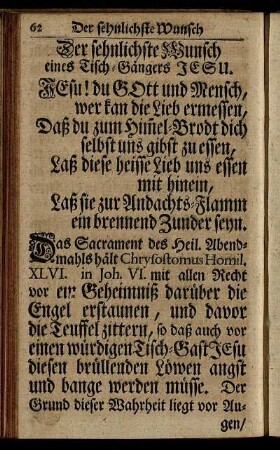 62 Der sehnlichste Wunsch
Der sehnlichste Wunsch
eines Tisch-Gängers JESU.
JEsu! du GOtt und Mensch,
wer kan die Lieb ermessen,
Daß du zum Him̃el-Brodt dich
selbst uns gibst zu essen,
Laß diese heisse Lieb uns essen
mit hinein,
Laß sie zur Andachts-Flamm
ein brennend Zunder seyn.
Das Sacrament des Heil. Abend-
mahls hält Chrysostomus Homil.
XLVI. in Joh. VI. mit allen Recht
vor ein Geheimniß darüber die
Engel erstaunen, und davor
die Teuffel zittern, so daß auch vor
einen würdigen Tisch-Gast JEsu
diesen brüllenden Löwen angst
und bange werden müsse. Der
Grund dieser Wahrheit liegt vor Au-
gen/